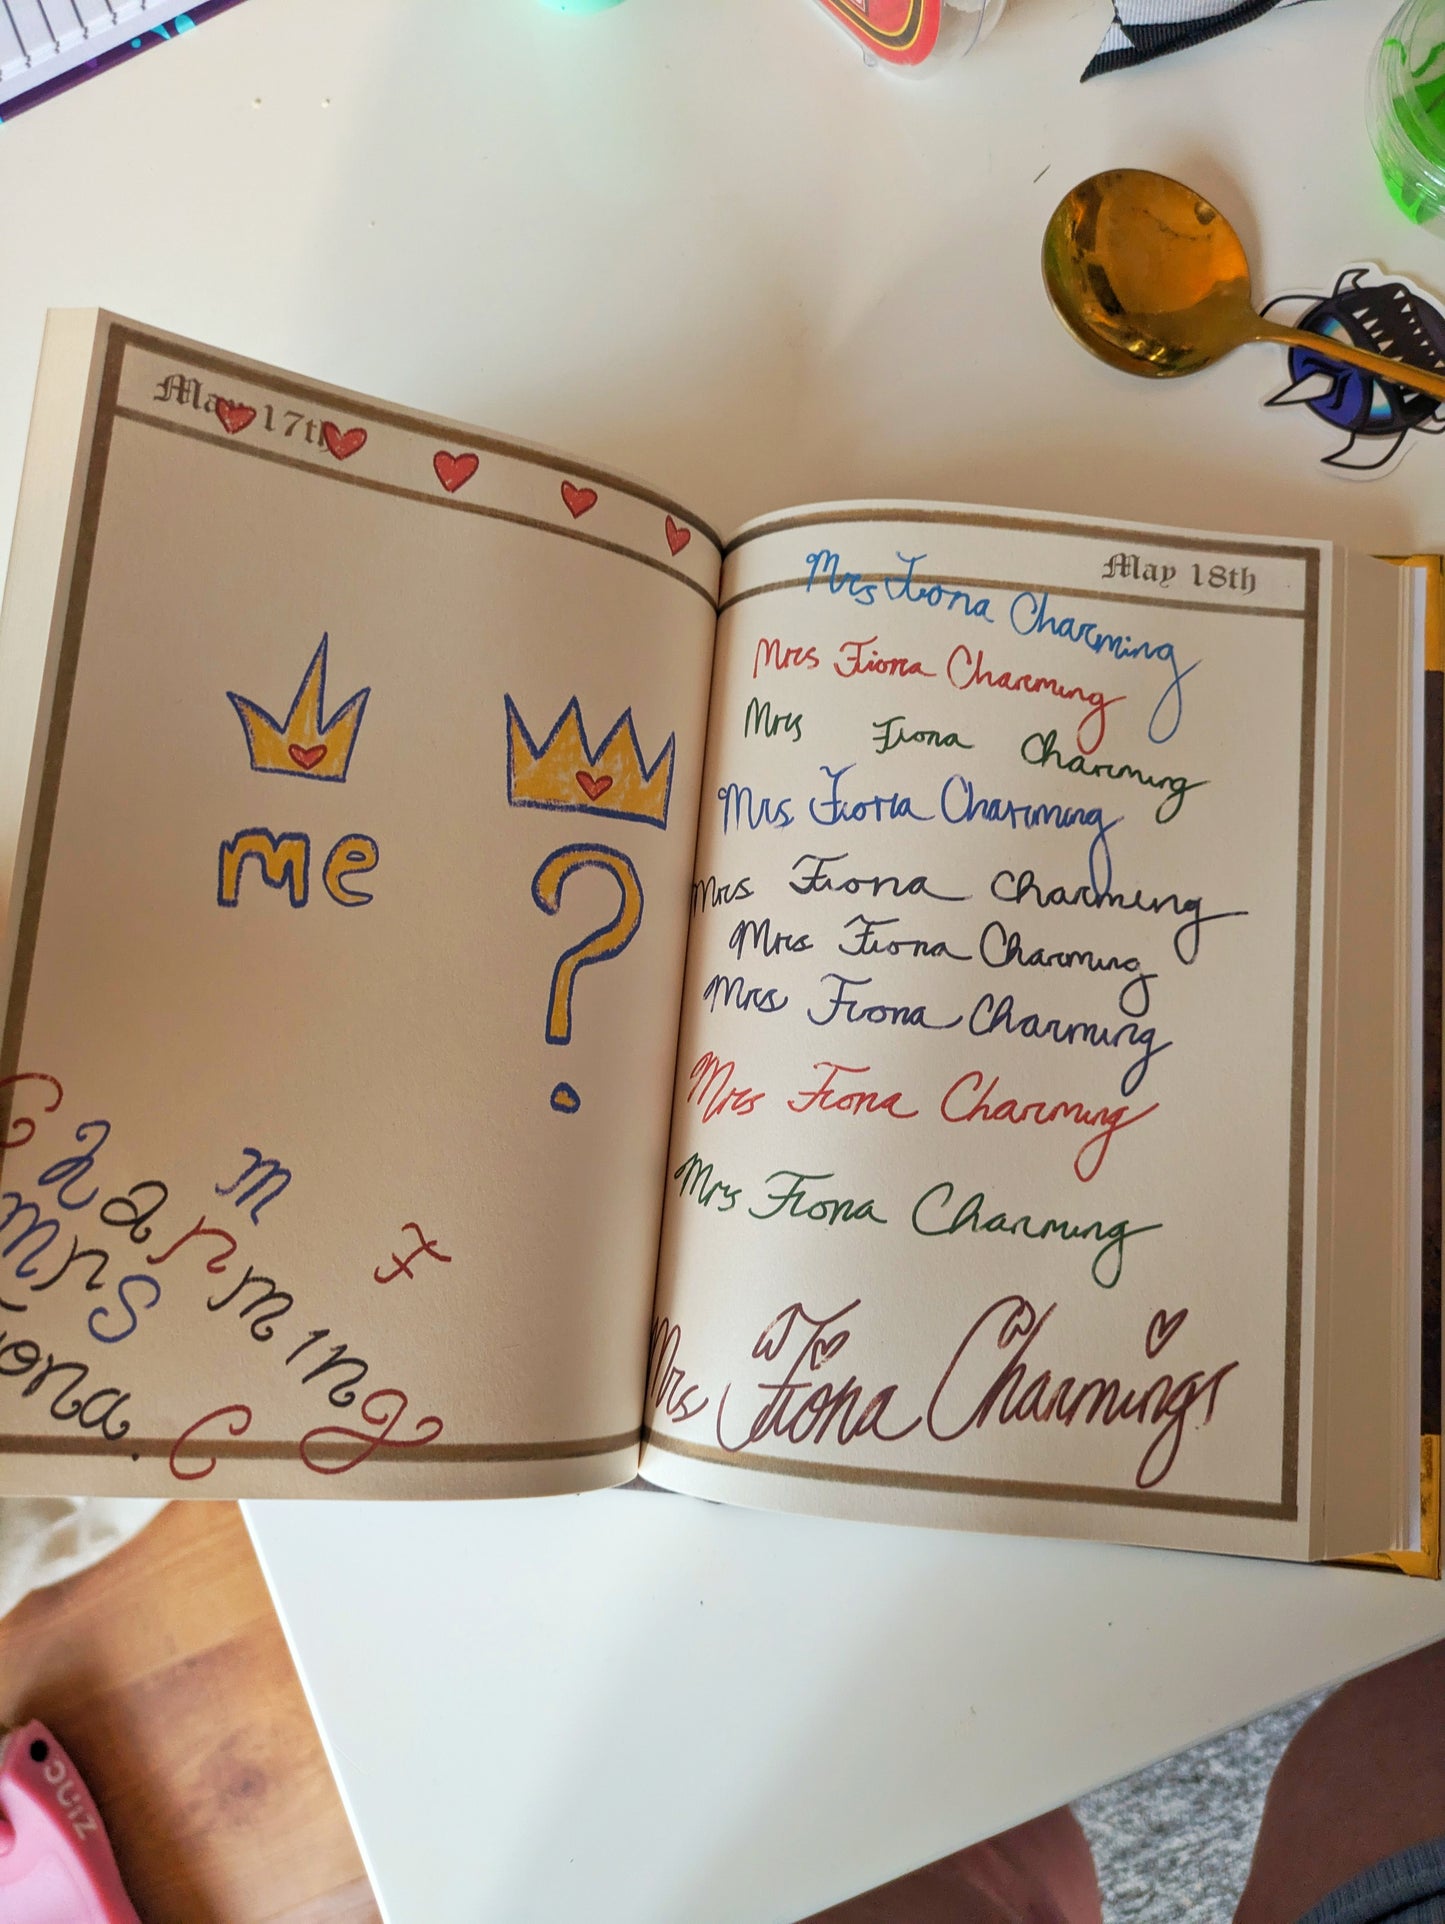 May 17th
me
?
M
Charming
F
Mrs
iona.
C
May 18th
Mrs Fiona Charming
Mrs Fiona Charming
Mrs Fiona Charming
Mrs Fiona Charming
Mrs Fiona Charming
Mrs Fiona Charming
Mrs Fiona Charming
Mrs Fiona Charming
Mrs Fiona Charming
Mrs Fiona Charming!
zinc